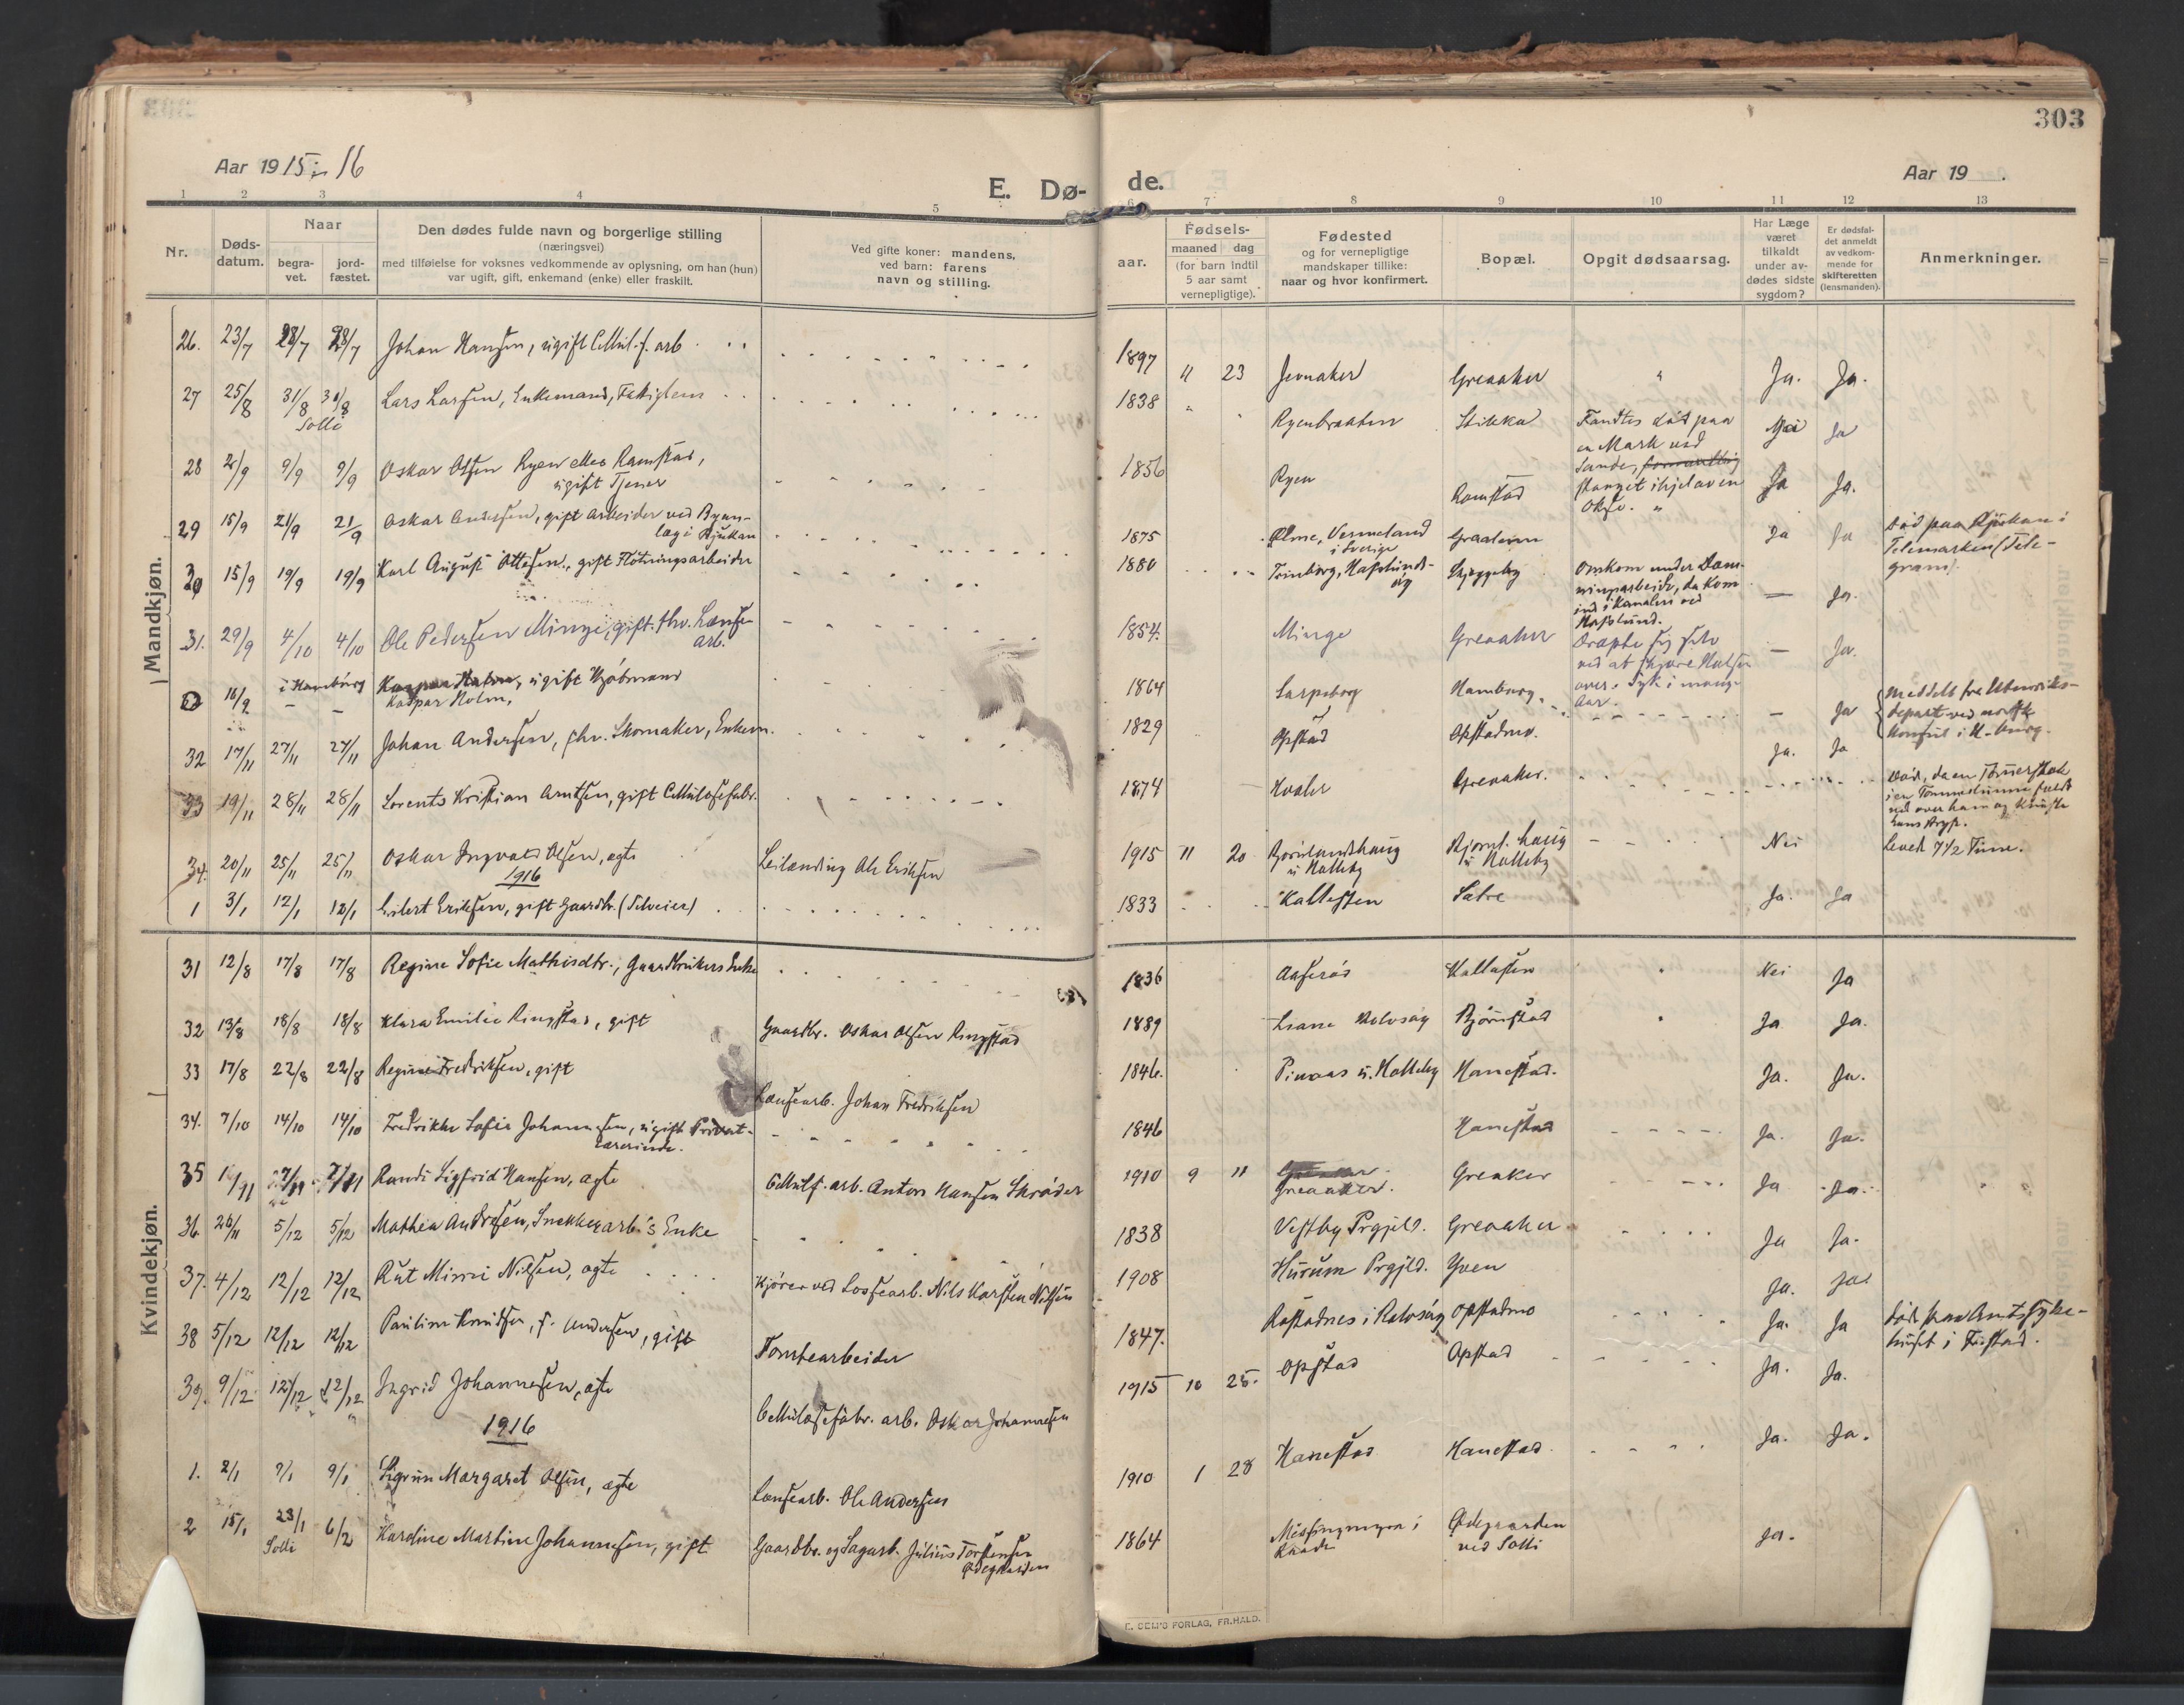 303
Aar 1915 & 16
E. Dø-
de.
Aar 19 .
1 2 3 4 5 6 7 8 9 10 11 12 13
Nr.
Døds-
datum.
Naar
begra-
vet.
jord-
fæstet.
Den dødes fulde navn og borgerlige stilling
(næringsvei)
med tilføielse for voksnes vedkommende av oplysning, om han (hun)
var ugift, gift, enkemand (enke) eller fraskilt.
Ved gifte koner: mandens,
ved barn: farens
navn og stilling.
Fødsels-
aar.
maaned dag
(for barn indtil
5 aar samt
vernepligtige).
Fødested
og for vernepligtige
mandskaper tillike:
naar og hvor konfirmert.
Bopæl.
Opgit dødsaarsag.
Har Læge
været
tilkaldt
under av-
dødes sidste
sygdom?
Er dødsfal-
det anmeldt
av vedkom-
mende for
skifteretten
(lensmanden).
Anmerkninger.
Mandkjøn.
26. 23/7 28/7 28/7 Johan Hansen, ugift Cellul.f. arb 1897 11 23 Jevnaker Greaaker " Ja. Ja.
27 25/8 31/8 31/8 Lars Larsen, Enkemand, Fattiglem 1838 Ryenbraaten Stikka Fandtes død paa Nei Ja
Solli
en Mark ved
Sande,
stanget ihjel av en
Okse.
28 2/9 9/9 9/9 Oskar Olsen Ryen eller Ramstad, 1856 Ryen Ramstad " Ja Ja.
ugift Tjener
29 15/9 21/9 21/9 Oskar Andersen, gift Arbeider ved Byan- 1875 Ølme, Vermeland Graaleum Ja Ja Død paa Rjukan i
læg i Rjukan
i Sverige
Telemarken (Tele-
gram).
30 15/9 19/9 19/9 Karl August Ottesen, gift Fløtningsarbeider 1880 Trinborg, Hafslunds- Skjeggeby Omkom under Dæm- — Ja.
øy
ningsarbeide, da kom
ind i Kanalen ved
Hafslund.
31. 29/9 4/10 4/10 Ole Pedersen Minge, gift. fhv. Lænse- 1854. Minge Greaaker Dræpte sig selv — Ja.
arb.
ved at skjære Halsen
over. Syk i mange
Aar.
16/9 i Hamburg Kaspar Holm, ugift Kjøbmand 1864 Sarpsborg Hamburg. — Ja Meddelt fra Utenriks-
Kaspar Holm,
depart. ved norsk
Konsul i H-burg.
32 17/11 27/11 27/11 Johan Andersen, fhv. Skomaker, Enkem. 1829 Opstad Opstadmo. Ja. Ja
33 19/11 28/11 28/11 Lorents Kristian Arntsen, gift Cellulosefabr. 1874 Hvaler Greaaker. Død, da en Tømmerstok
i en Tømmerlunne faldt
ned over ham og knuste
hans Bryst.
34. 20/11 25/11 25/11 Oskar Ingvald Olsen, ægte Leilænding Ole Eriksen 1915 11 20 Bjørnlandshaug Bjørnl. haug Nei Levet 7 1/2 Time.
u Halleby u Halleby
1916
1 3/1 12/1 12/1 Eilert Eriksen, gift Gaardbr. (Selveier) 1833 Kallesten Sætre Ja. Ja
Kvindekjøn.
31 12/8 17/8 17/8 Regine Sofie Mathisdtr., Gaardbrukers Enke 1836 Aaserød Kallesten Nei Ja
32 13/8 18/8 18/8 Klara Emilie Ringstad, gift Gaardbr. Oskar Olsen Ringstad 1889 Lisane Rolvsøy Bjørnstad Ja Ja.
33 17/8 22/8 22/8 Regine Fredriksen, gift Lænsearb. Johan Fredriksen 1846. Pinaas u. Halleby Hannestad. Ja. Ja.
34. 7/10 14/10 14/10 Fredrikke Sofie Johannesen, ugift Privat- 1846 Hannestad Ja. Ja.
lærerinde.
35 Randi Sigfrid Hansen, ægte Cellulf. arb. Anton Hansen Skrøder 1910 9 11 Greaaker. Greaker Ja Ja.
36 26/11 5/12 5/12 Mathea Andresen, Snekkerarb.'s Enke 1838 Vestby Prgjeld. Greaaker Ja Ja.
37. 4/12 12/12 12/12 Rut Mimi Nilsen, ægte Kjører ved Lossearb. Nils Karsten Nilsen 1908 Hurum Prgjeld. Yven Ja. Ja.
38 5/12 12/12 12/12 Pauline Knudsen, f. Andersen, gift Tomtearbeider 1847. Rostadnes i Rolvsøy Opstadmo Ja. Ja Død paa Amtssyke-
huset i Frstad.
39. 9/12 12/12 12/12 Ingrid Johannesen, ægte Cellulosefabr. arb. Oskar Johannesen 1915 10 25. Opstad Opstad Ja. Ja.
1916
1. 2/1 9/1 9/1 Sigrun Margaret Olsen, ægte Lænsearb. Ole Andersen 1910 1 28 Hannestad Hannestad Ja. Ja.
2 15/1 23/1 6/2 Hardine Martine Johannesen, gift Gaardbr. og Sagarb. Julius Torstensen 1864 Missingmyra i Ødegaarden Ja.
Solli Ødegaarden Raade ved Solli
E. SEM'S FORLAG, FR.HALD.